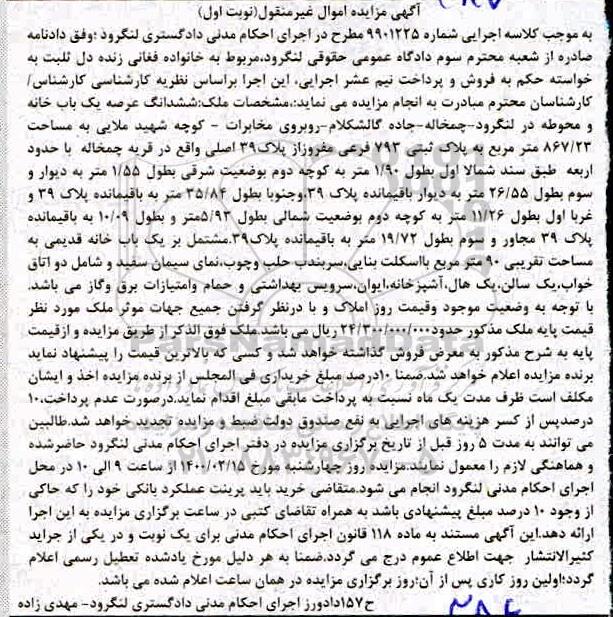 آگهی مزایده اموال غیرمنقول(نوبت اول)
به موجب کلاسه اجرایی شماره ۹۹۰۱۲۲۵ مطرح در اجرای احکام مدنی دادگستری لنگرود ؛وفق دادنامه
صادره از شعبه محترم سوم دادگاه عمومی حقوقی لنگرود،مربوط به خانواده فغانی زنده دل ثلبت به
خواسته حکم به فروش و پرداخت نیم عشر اجرایی، این اجرا براساس نظریه کارشناسی کارشناس/
کارشناسان محترم مبادرت به انجام مزایده می نماید:،مشخصات ملک:ششدانگ عرصه یک باب خانه
و محوطه در لنگرود-چمخاله-جاده گالشکلام-روبروی مخابرات - کوچه شهید ملایی به مساحت
۸۶۷/۲۳ متر مربع به پلاک ثبتی ۷۹۳ فرعی مفروزاز پلاک۳۹ اصلی واقع در قریه چمخاله با حدود
اربعه طبق سند شمالا اول بطول ۱/۹۰ متر به کوچه دوم بوضعیت شرقی بطول ۱/۵۵ متر به دیوار و
سوم بطول ۲۶/۵۵ متر به دیوار باقیمانده پلاک ۳۹،وجنوبا بطول ۳۵/۸۴ متر به باقیمانده پلاک ۳۹ و
غربا اول بطول ۱۱/۲۶ متر به کوچه دوم بوضعیت شمالی بطول ۵/۹۳متر و بطول ۱۰/۰۹ به باقیمانده
پلاک ۳۹ مجاور و سوم بطول ۱۹/۷۲ متر به باقیمانده پلاک۳۹.مشتمل بر یک باب خانه قدیمی به
مساحت تقریبی ۹۰ متر مربع بااسکلت بنایی،سربندب حلب وچوب،نمای سیمان سفید و شامل دو اتاق
خواب،یک سالن،یک هال،آشپزخانه،ایوان،سرویس بهداشتی و حمام وامتیازات برق وگاز می باشد.
با توجه به وضعیت موجود وقیمت روز املاک و با درنظر گرفتن جمیع جهات موثر ملک مورد نظر
قیمت پایه ملک مذکور حدود۲۴/۳۰۰/۰۰۰/۰۰۰ ریال می باشد.ملک فوق الذکر از طریق مزایده و ازقیمت
پایه به شرح مذکور به معرض فروش گذاشته خواهد شد و کسی که بالاترین قیمت را پیشنهاد نماید
برنده مزایده اعلام خواهد شد.ضمنا ۱۰درصد مبلغ خریداری فی المجلس از برنده مزایده اخذ و ایشان
مکلف است ظرف مدت یک ماه نسبت به پرداخت مابقی مبلغ اقدام نماید.درصورت عدم پرداخت،۱۰
درصدپس از کسر هزینه های اجرایی به نفع صندوق دولت ضبط و مزایده تجدید خواهد شد.طالبین
می توانند به مدت ۵ روز قبل از تاریخ برگزاری مزایده در دفتر اجرای احکام مدنی لنگرود حاضرشده
و هماهنگی لازم را معمول نمایند.مزایده روز چهارشنبه مورخ ۱۴۰۰/۰۲/۱۵ از ساعت ۹ الی ۱۰ در محل
اجرای احکام مدنی لنگرود انجام می شود.متقاضی خرید باید پرینت عملکرد بانکی خود را که حاکی
از وجود ۱۰ درصد مبلغ پیشنهادی باشد به همراه تقاضای کتبی در ساعت برگزاری مزایده به این اجرا
ارائه دهد.این آگهی مستند به ماده ۱۱۸ قانون اجرای احکام مدنی برای یک نوبت و در یکی از جراید
کثیرالانتشار جهت اطلاع عموم درج می گردد.ضمنا به هر دلیل مورخ یادشده تعطیل رسمی اعلام
گردد؛اولین روز کاری پس از آن؛روز برگزاری مزایده در همان ساعت اعلام شده می باشد.
ح۱۵۷دادورز اجرای احکام مدنی دادگستری لنگرود- مهدی زاده